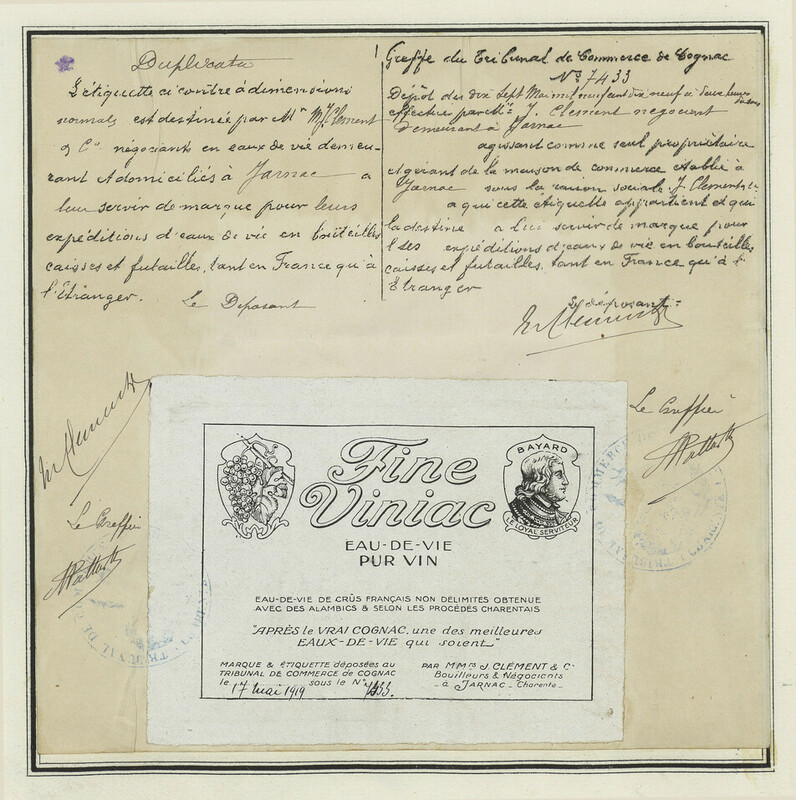 Duplicata
L'étiquette ci contre à dimensions
normales est destinée par Mr M J Clement
& Cie négociants en eaux de vie demeu-
rant et domiciliés à Jarnac a
leur servir de marque pour leurs
expéditions d'eaux de vie en bouteilles
caisses et futailles, tant en France qu'à
l'Etranger.
Le Deposant
Greffe du Tribunal de Commerce de Cognac
No 7433
Dépôt des dix sept Mai mil neuf cent dix neuf à deux heures
effectué par Mr J. Clement négociant
demeurant à Jarnac
agissant comme seul propriétaire
et gérant de la maison de commerce établie à
Jarnac sous la raison sociale J Clement & Cie
a qui cette étiquette appartient et qui
la destine a lui servir de marque pour
ses expéditions d'eaux de vie en bouteilles
caisses et futailles, tant en France qu'à l'
Etranger
Le déposant
Le Greffier
Le Greffier
BAYARD
LE LOYAL SERVITEUR
Fine
Viniac
EAU-DE-VIE
PUR VIN
EAU-DE-VIE DE CRÛS FRANÇAIS NON DÉLIMITÉS OBTENUE
AVEC DES ALAMBICS & SELON LES PROCÉDÉS CHARENTAIS
"APRÈS le VRAI COGNAC, une des meilleures
EAUX-DE-VIE qui soient"
MARQUE & ÉTIQUETTE déposées au
TRIBUNAL DE COMMERCE DE COGNAC
le 17 Mai 1919 sous le No 7433.
PAR MMrs J. CLÉMENT & Co
Bouilleurs & Négociants
à JARNAC - Charente